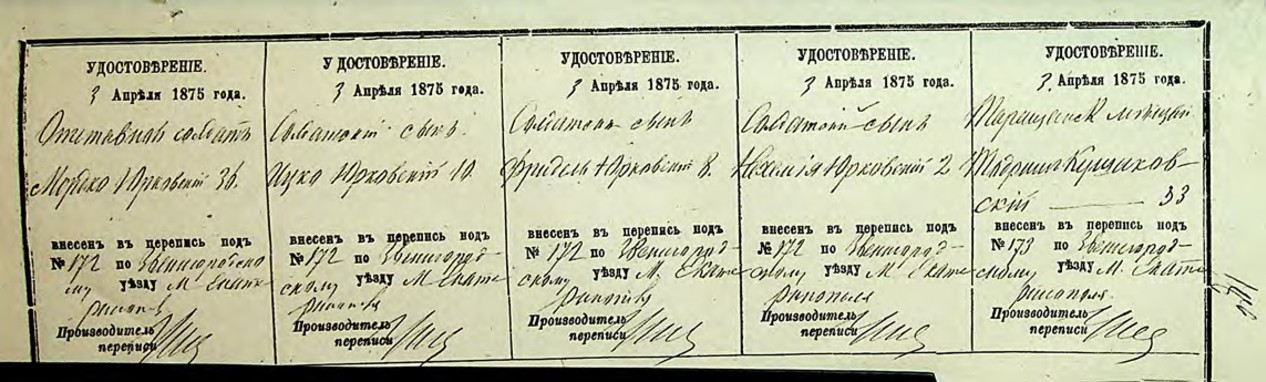 УДОСТОВѢРЕНІЕ.
3 Апрѣля 1875 года.
Отставной солдатъ
Мордко Юрковскій 36.
внесенъ въ перепись подъ
№ 172 по Звенигородско
му уѣзду М. Екате
Производитель
переписи
У ДОСТОВѢРЕНІЕ.
3 Апрѣля 1875 года.
Солдатскій сынъ
Ицко Юрковскій 10.
внесенъ въ перепись подъ
№ 172 по Звенигород-
скому уѣзду М Екате
Производитель
переписи
УДОСТОВѢРЕНІЕ.
3 Апрѣля 1875 года.
Солдатск сынъ
Фридель Юрковскій 8.
внесенъ въ перепись подъ
№ 172 по Звенигород-
скому уѣзду М. Екате
Производитель
переписи
УДОСТОВѢРЕНІЕ.
3 Апрѣля 1875 года.
Солдатскій сынъ
Нехемія Юрковскій 2
внесенъ въ перепись подъ
№ 172 по Звенигород-
скому уѣзду М Екате
ринополя
Производитель
переписи
УДОСТОВѢРЕНІЕ.
3 Апрѣля 1875 года.
Таращанск мѣщан
скій 33
внесенъ въ перепись подъ
№ 173 по Звенигород-
скому уѣзду М. Екате
ринополя.
Производитель
переписи